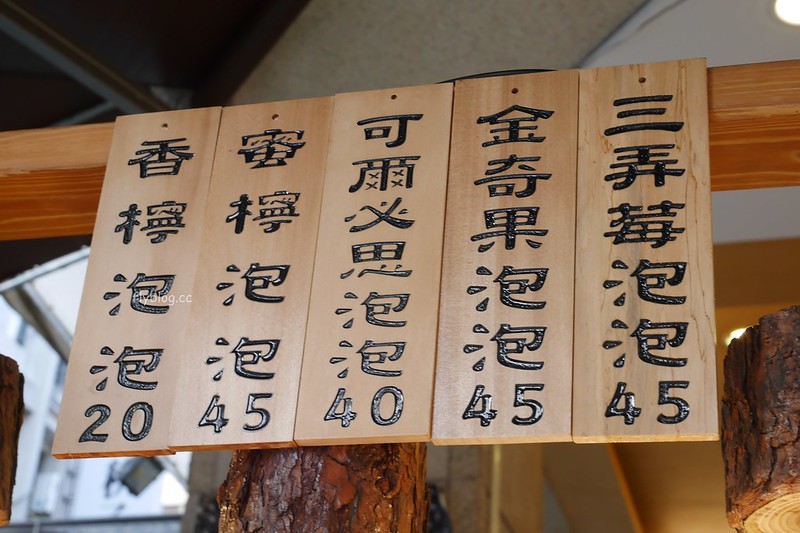 香檸泡泡
20
蜜檸泡泡
45
可爾必思泡泡
40
金奇果泡泡
45
三弄莓泡泡
45
flyblog.cc